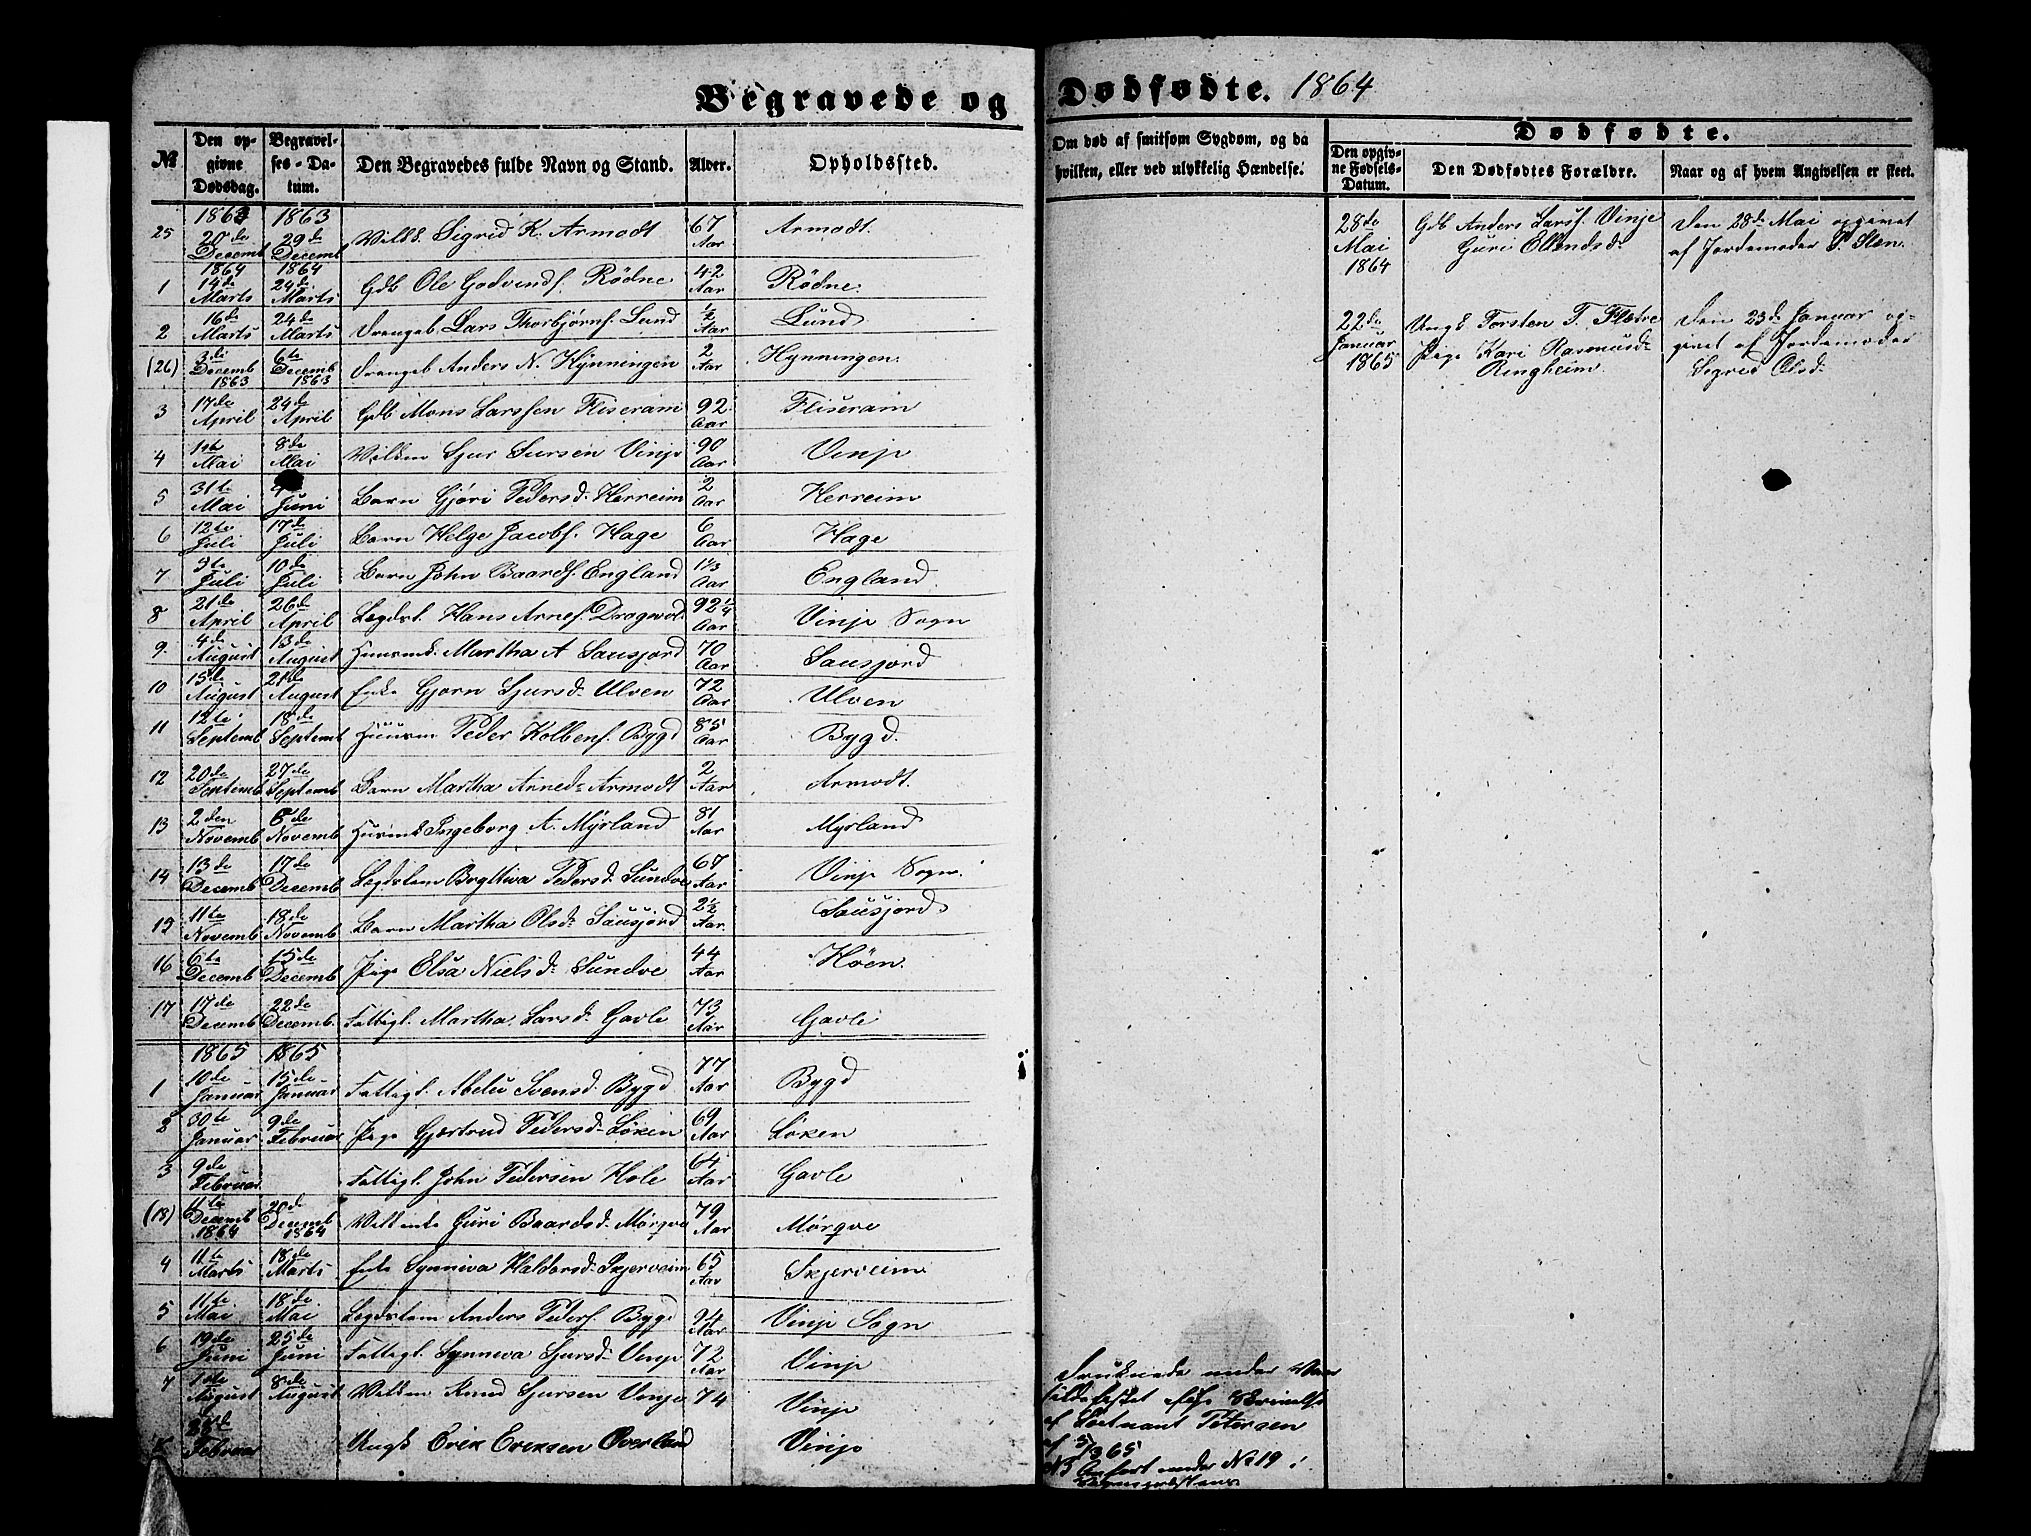 Begravede og Dødfødte. 1864
№ Den opgivne Dødsdag. Begravelses-Datum. Den Begravedes fulde Navn og Stand. Alder. Opholdssted.
Om død af smitsom Sygdom, og da hvilken, eller ved ulykkelig Hændelse.
Dødfødte.
Den opgivne Fødsels-Datum. Den Dødfødtes Forældre. Naar og af hvem Angivelsen er skeet.
25 1863 20de Decemb 1863 29de Decemb Sigrid K. Armodt 67 Aar Armodt.
1 1864 14de Marts 1864 24de Marts Gdb Ole Godvendf. Rødne 42 Aar Rødne.
2 16de Marts 24de Marts Drengeb Lars Thorbjørnf. Lund ½ Aar Lund
(26) 3die Decemb 1863 6te Decemb 1863 Drengeb Anders N. Hynningen 2 Aar Hynningen.
3 17de April 24de April Gdb Mons Larssen Fliseram 92 Aar Fliseram
4 1ste Mai 8de Mai Sjur Sursen Vinje 90 Aar Vinje
5 31te Mai Juni Barn Gjøri Pedersd. Herreim 2 Aar Herreim
6 12te Juli 17de Juli Barn Helge Jacobf. Hage 6 Aar Hage
7 3te Juli 10de Juli Barn John Baardf. England 1⅓ Aar England.
8 21de April 26de April Lægdsl. Hans Arnef. Dragevol. 92¼ Aar Vinje Sogn
9. 4de August 13de August Huusmd. Martha A Sausjord 70 Aar Sausjord
10 15de August 21de August Enke Gjørn Sjursd: Ulven 72 Aar Ulven
11 12te Septemb 18de Septemb Huusm Peder Kolbenf. Bygd 85 Aar Bygd.
12 20de Septemb 27de Septemb Barn Martha Arned: Armodt 2 Aar Armodt.
13 2den Novemb 6de Novemb Ingeborg A. Myrland 81 Aar Myrland
14 13de Decemb 17de Decemb Lægdslem Bryttiva Pedersd. Sundve 67 Aar Vinje Sogn.
15 11te Novemb 18de Novemb Barn Martha Olsd: Sausjord 2½ Aar. Sausjord.
16 6te Decemb 15de Decemb Pige Olsa Nielsd: Sundve 44 Aar Høen.
17 17de Decemb 22de Decemb. Fattigl. Martha Larsd: Gavle 73 Aar Gavle
1 1865 10de Januar 1865 15de Januar Fattigl. Abelu Svensd. Bygd 77 Aar Bygd
2 30te Januar 9de Februar Pige Gjertrud Pedersd: Løken 69 Aar Løken
3 9de Februar Fattigl. John Pedersen Hole 64 Aar Gavle
(18) 11te Decemb 1864 20de Decemb 1864 Guri Baardsd. Mørqve 79 Aar Mørqve
4 11te Marts 18de Marts Enke Synneva Haldorsd: Skjerveim 65 Aar Skjerveim
5 11te Mai 18de Mai Lægdslem Anders Pederf. Bygd 24 Aar Vinje Sogn
6 19de Juni 25de Juni Fattigl. Synneva Sjursd: Vinje 72 Aar Vinje
7 1ste August 8de August Knud Sjursen Vinje 74 Vinje
Februar Ungk Erik Eriksen Øverland Vinje
28de Mai 1864 Gdb Anders Larsf. Vinje Guri Ellendsd: Den 28de Mai opgivet af Jordemoder S. Sløn.
22de Januar 1865 Ungk Torsten T. Fletre Pige Kari Rasmusd: Ringheim Den 23de Januar opgivet af Jordemoder Sigrid Olsd:
Druknede under
af Løitnant Petersen
af 5/3 65
NB Anført under No 19